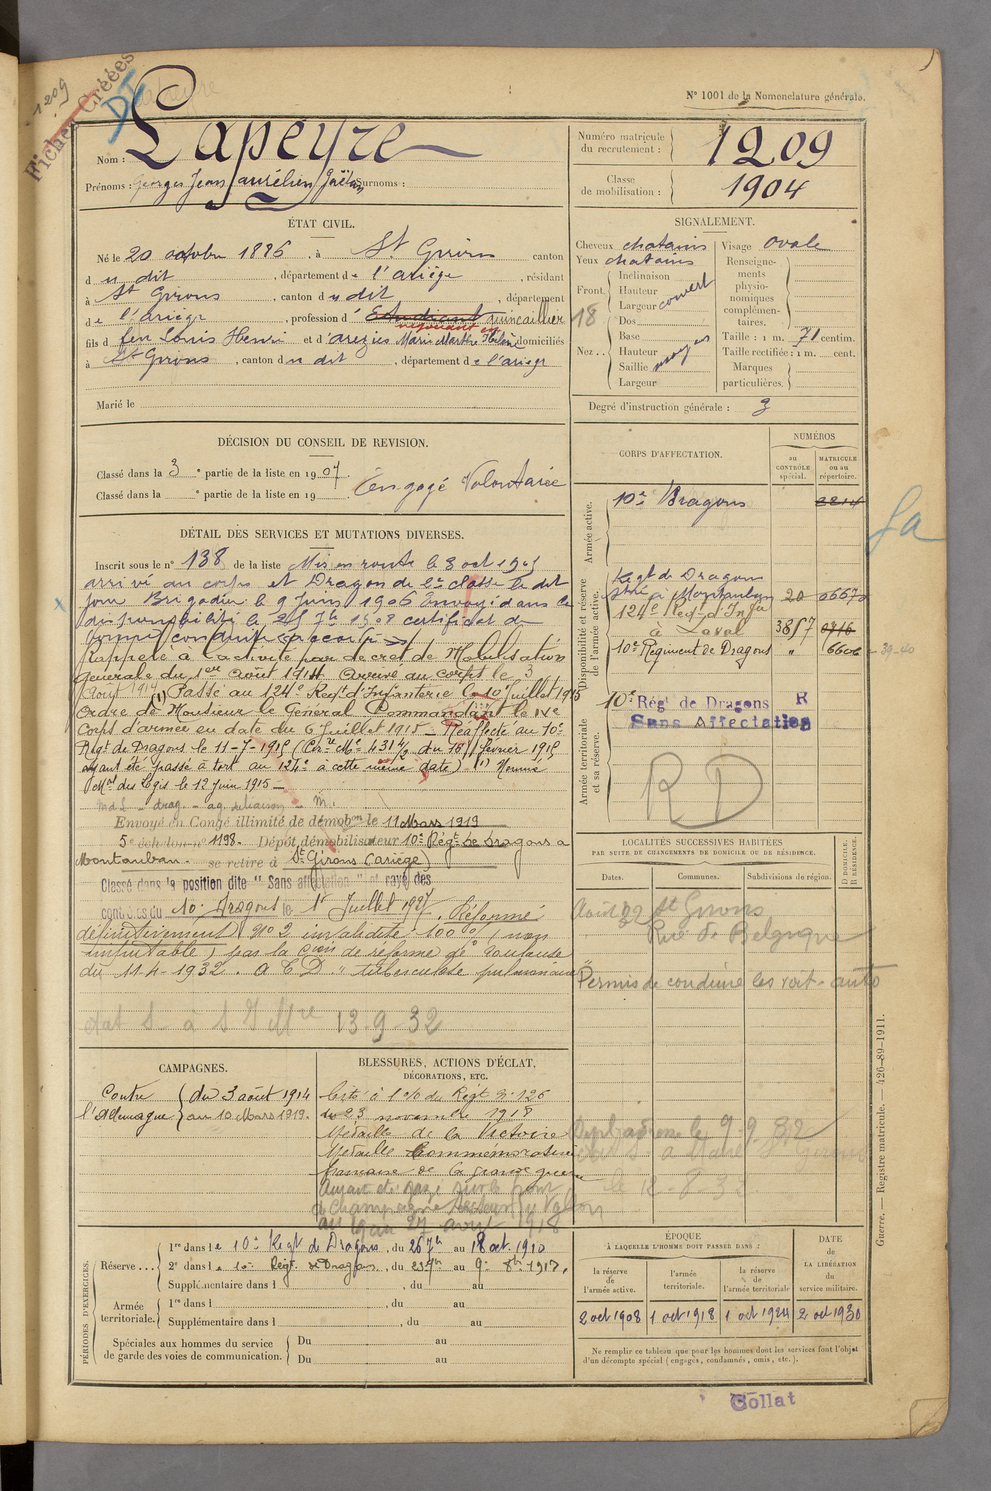 1209
Fiches Créées
N° 1001 de la Nomenclature générale.
Nom : Lapeyre
Prénoms : Georges Jean Aurélien Surnoms :
Numéro matricule du recrutement : 1209
Classe de mobilisation : 1904
ÉTAT CIVIL.
Né le 20 octobre 1886, à St Girons canton
du dit, département de l'ariège, résidant
à St Girons, canton du dit, département
de l'ariège, profession d' Etudiant quincaillier
négociant en
fils d feu Louis Henri et d' arexies Marie Marthe domiciliés
à St Girons, canton du dit, département de l'ariège
Marié le
SIGNALEMENT.
Cheveux chatains
Yeux chatains
Front. Inclinaison
Hauteur
Largeur couvert
Nez... Dos
Base
Hauteur moyen
Saillie
Largeur
Visage ovale
Renseignements physionomiques complémentaires.
Taille : 1 m. 71 centim.
Taille rectifiée : 1 m. cent.
Marques particulières.
Degré d'instruction générale : 3
DÉCISION DU CONSEIL DE REVISION.
Classé dans la 3e partie de la liste en 1907. Engagé Volontaire
Classé dans la e partie de la liste en 19
CORPS D'AFFECTATION.
NUMÉROS
au CONTRÔLE spécial.
MATRICULE ou au répertoire.
Armée active.
10e Dragons
Disponibilité et réserve de l'armée active.
Regt de Dragons
à Montauban 20 06670
124e Regt d'Infie
à Laval 3857
10e Régiment de Dragons " 6606
39-40
Armée territoriale et sa réserve.
10e Rég' de Dragons R
Sans Affectation
RD
DÉTAIL DES SERVICES ET MUTATIONS DIVERSES.
Inscrit sous le n° 138 de la liste Mis en route le 3 oct 1905
arrivé au corps et Dragon de 2e classe le dit
jour Brigadier le 9 Juin 1906 Envoyé dans la
disponibilité le 25 7bre 1908 certificat de
bonne conduite accordé
Rappelé à l'activité par decret de Mobilisation
Générale du 1er août 1914 Arrivé au corps le 3
Août 1914 (1) Passé au 124e Regt d'Infanterie le 10 Juillet 1915
Ordre de Monsieur le Général Commandant le IVe
Corps d'armée en date du 6 Juillet 1915 - Réaffecté au 10e
Régt de Dragons le 11-7-1915 (Cire Mle 4314/3 du 18 février 1915
ayant été passé à tort au 124e à cette même date) (1) Nommé
Mal des Logis le 12 Juin 1915 -
Mdl - drag. - ag. de liaison - m.
Envoyé en Congé illimité de démobon le 11 Mars 1919
5e échelon n° 1198. Dépôt démobilisateur 10e Régt de Dragons à
Montauban. se retire à St Girons (ariège)
Classé dans la position dite " Sans affectation " et rayé des
contrôles du 10e Dragons le 1er Juillet 1927. Réformé
définitivement N° 2 invalidité 100% (non
imputable) par la Cion de réforme de Toulouse
du 11-4-1932. " tuberculose pulmonaire "
13-9-32
LOCALITÉS SUCCESSIVES HABITÉES
PAR SUITE DE CHANGEMENTS DE DOMICILE OU DE RÉSIDENCE.
Dates.
Communes.
Subdivisions de région.
D DOMICILE.
R RÉSIDENCE.
Août 29 St Girons
Rue de Belgique
Permis de conduire les voit. auto
le 9-9-32
le 12-8-32
CAMPAGNES.
Contre l'Allemagne
du 3 août 1914
au 10 Mars 1919.
BLESSURES, ACTIONS D'ÉCLAT,
DÉCORATIONS, ETC.
Cité à l'O/ du Régt N° 126
du 23 novembre 1918
Médaille de la Victoire
Médaille Commémorative
française de la grande guerre
avril 1918
PÉRIODES D'EXERCICES.
Réserve...
1re dans le 10e Regt de Dragons, du 26 7bre au 18 oct. 1910
2e dans le 10e Régt de Dragons, du 23 7bre au 9 8bre 1912.
Supplémentaire dans l , du au
Armée territoriale.
1re dans l , du au
Supplémentaire dans l , du au
Spéciales aux hommes du service de garde des voies de communication.
Du au
Du au
ÉPOQUE
À LAQUELLE L'HOMME DOIT PASSER DANS :
la réserve de l'armée active.
l'armée territoriale.
la réserve de l'armée territoriale
DATE de LA LIBÉRATION du service militaire.
2 oct 1908
1 oct 1918
1 oct 1924
2 oct 1930
Ne remplir ce tableau que pour les hommes dont les services font l'objet
d'un décompte spécial (engagés, condamnés, omis, etc.).
Guerre. — Registre matricule. — 426-89-1911.
Collat